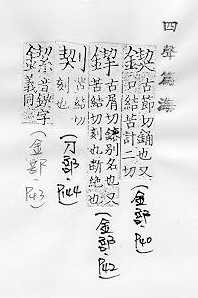 四聲篇海
鍥 古節切 也又
口結苦計二切
(金部,P40)
古屑切鎌別名也又
苦結切刻也斷絕也
(金部,P42)
苦結切
刻也
(刀部,P144)
音鍥字
義同
(金部,P43)